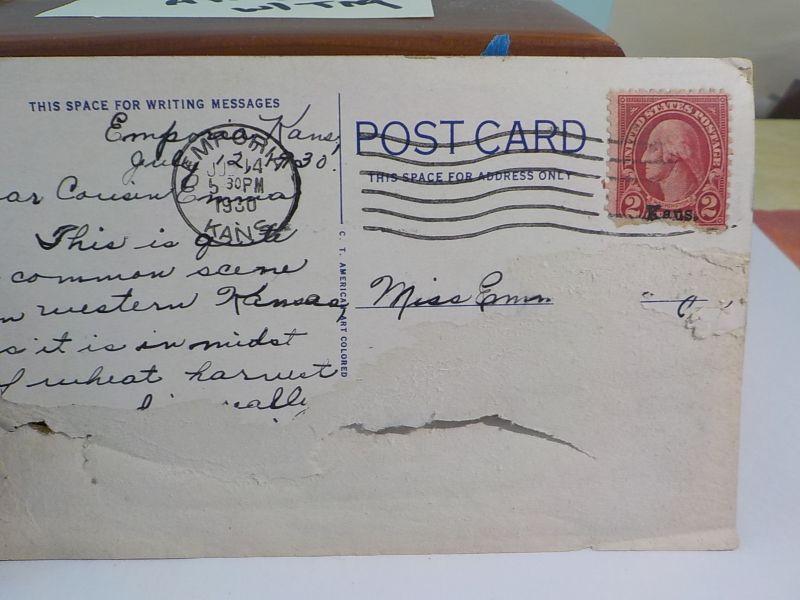 W/TM
THIS SPACE FOR WRITING MESSAGES
Emporia, Kans,
July 12, 1930.
ar Cousin Emma
This is quite
common scene
n western Kansas,
s it is in midst
f wheat harvest
EMPORIA
JUL 14
5 30 PM
1930
KANS
C. T. AMERICAN ART COLORED
POST CARD
THIS SPACE FOR ADDRESS ONLY
UNITED STATES POSTAGE
2 Kans. 2
Miss Emm